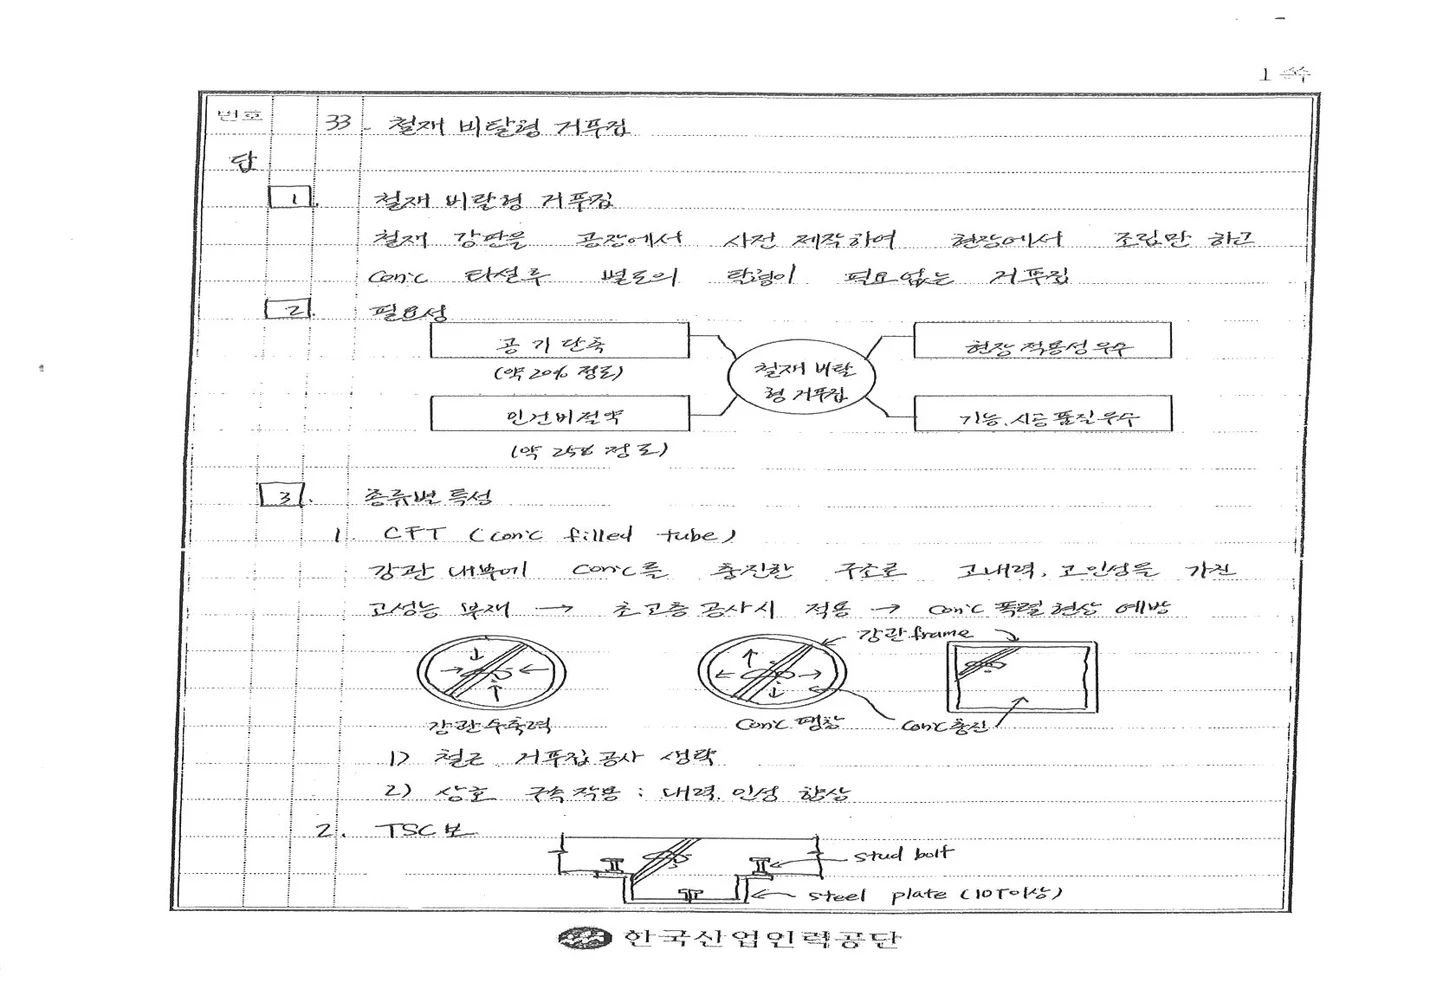 1 쪽수
번호
33. 철재 비탈형 거푸집
답
1. 철재 비탈형 거푸집
철재 강판을 공장에서 사전 제작하여 현장에서 조립만 하고
con'c 타설후 별도의 탈형이 필요없는 거푸집
2. 필요성
공기단축
(약 20% 정도)
인건비절약
(약 25% 정도)
철재 비탈
형 거푸집
현장 적용성 우수
기능, 시공 품질 우수
3. 종류별 특성
1. CFT (con'c filled tube)
강관 내부에 con'c를 충진한 구조로 고내력, 고인성을 가진
고성능 부재 → 초고층 공사시 적용 → con'c 폭렬현상 예방
강관 frame
강관수축력
con'c 팽창
con'c 충진
1) 철근, 거푸집공사 생략
2) 상호 구속작용 : 내력, 인성 향상
2. TSC 보
stud bolt
steel plate (10T이상)
한국산업인력공단